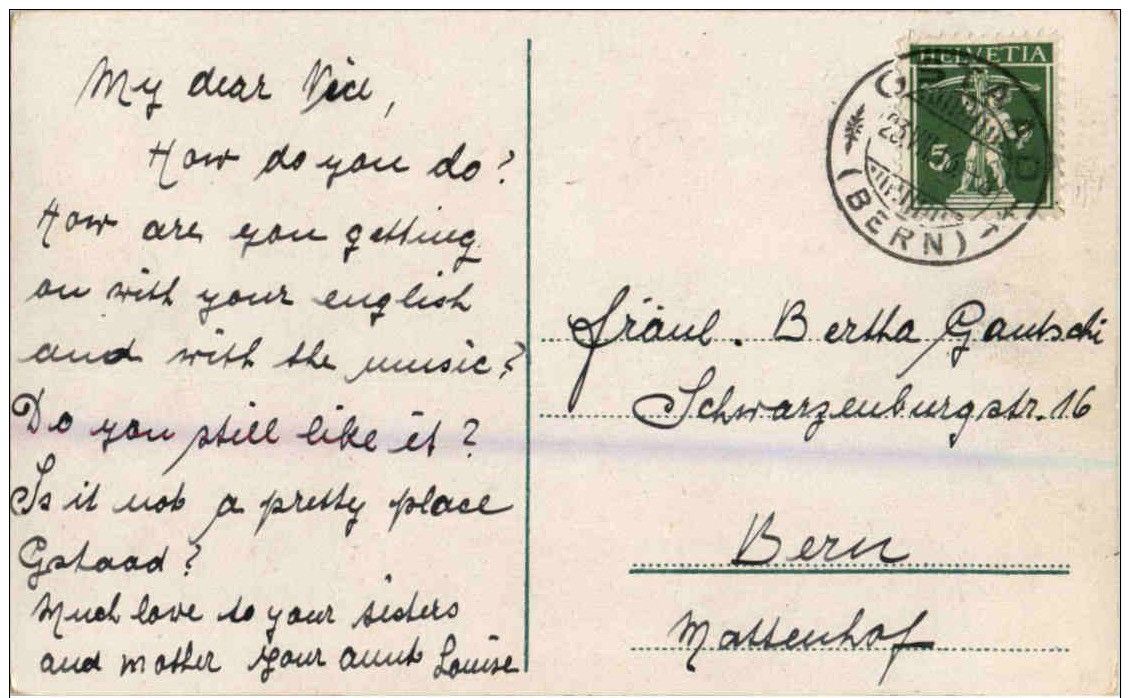 My dear Vice,
How do you do?
How are you getting
on with your english
and with the music?
Do you still like it?
Is it not a pretty place
Gstaad?
Much love to your sisters
and mother your aunt Louise
HELVETIA
GSTAAD
(BERN)
5
Fräul. Bertha Gautschi
Schwarzenburgstr. 16
Bern
Mattenhof